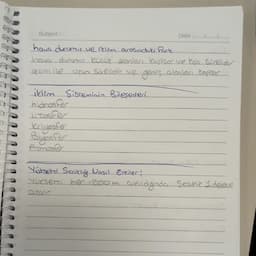 hava durumu ve iklim arasındaki Fark
hava durumu küçük alanları kapsar ve kısa sürelidir
iklim ise uzun sürelidir ve geniş alanları kapsar
iklim Sisteminin Bileşenleri
hidrosfer
litosfer
kriyosfer
Biyosfer
Atmosfer
Yükselti Sıcaklığı Nasıl Etkiler?
Yükselti her 200m çıkıldığında Sıcaklık 1 derece
azalır